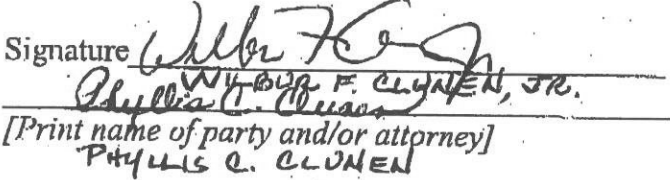 Signature Wilbur F. C
WILBUR F. CLUNEN, JR.
Phyllis C. Clunen
[Print name of party and/or attorney]
PHYLLIS C. CLUNEN